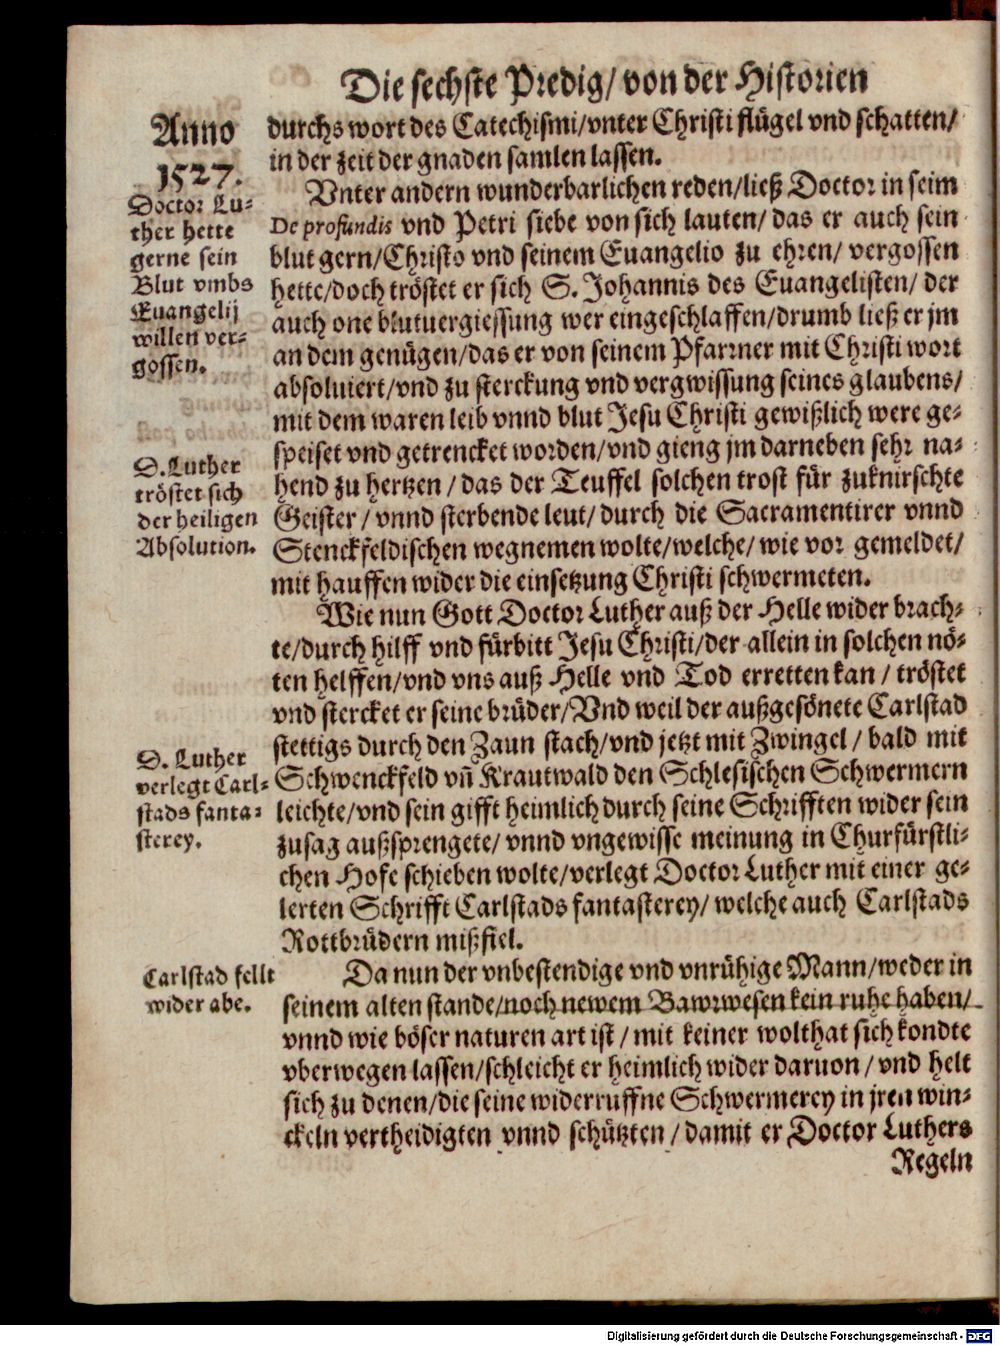 Die sechste Predig/ von der Historien
Anno
1527.
durchs wort des Catechismi/vnter Christi flügel vnd schatten/
in der zeit der gnaden samlen lassen.
Vnter andern wunderbarlichen reden/ließ Doctor in seim
De profundis vnd Petri siebe von sich lauten/ das er auch sein
blut gern/Christo vnd seinem Euangelio zu ehren/ vergossen
hette/doch tröstet er sich S. Johannis des Euangelisten/ der
auch one blutuergiessung wer eingeschlaffen/drumb ließ er jm
an dem genügen/das er von seinem Pfarrner mit Christi wort
absoluiert/vnd zu sterckung vnd vergwissung seines glaubens/
mit dem waren leib vnnd blut Jesu Christi gewißlich were ge-
speiset vnd getrencket worden/vnd gieng jm darneben sehr na-
hend zu hertzen/ das der Teuffel solchen trost für zuknirschte
Geister/ vnnd sterbende leut/durch die Sacramentirer vnnd
Stenckfeldischen wegnemen wolte/welche/ wie vor gemeldet/
mit hauffen wider die einsetzung Christi schwermeten.
Doctor Lu-
ther hette
gerne sein
Blut vmbs
Euangelij
willen ver-
gossen.
D. Luther
tröstet sich
der heiligen
Absolution.
Wie nun Gott Doctor Luther auß der Helle wider brach-
te/durch hilff vnd fürbitt Jesu Christi/der allein in solchen nö-
ten helffen/vnd vns auß Helle vnd Tod erretten kan/ tröstet
vnd stercket er seine brüder/Vnd weil der außgesönete Carlstad
stettigs durch den Zaun stach/vnd jetzt mit Zwingel/ bald mit
Schwenckfeld vñ Krautwald den Schlesischen Schwermern
leichte/vnd sein gifft heimlich durch seine Schrifften wider sein
zusag außsprengete/ vnnd vngewisse meinung in Churfürstli-
chen Hofe schieben wolte/verlegt Doctor Luther mit einer ge-
lerten Schrifft Carlstads fantasterey/ welche auch Carlstads
Rottbrüdern mißfiel.
D. Luther
verlegt Carl-
stads fanta-
sterey.
Da nun der vnbestendige vnd vnrühige Mann/weder in
seinem alten stande/noch newem Bawrwesen kein ruhe haben/
vnnd wie böser naturen art ist/ mit keiner wolthat sich kondte
vberwegen lassen/schleicht er heimlich wider daruon/ vnd helt
sich zu denen/die seine widerruffne Schwermerey in jren win-
ckeln vertheidigten vnnd schützten/damit er Doctor Luthers
Regeln
Carlstad fellt
wider abe.
Digitalisierung gefördert durch die Deutsche Forschungsgemeinschaft - DFG